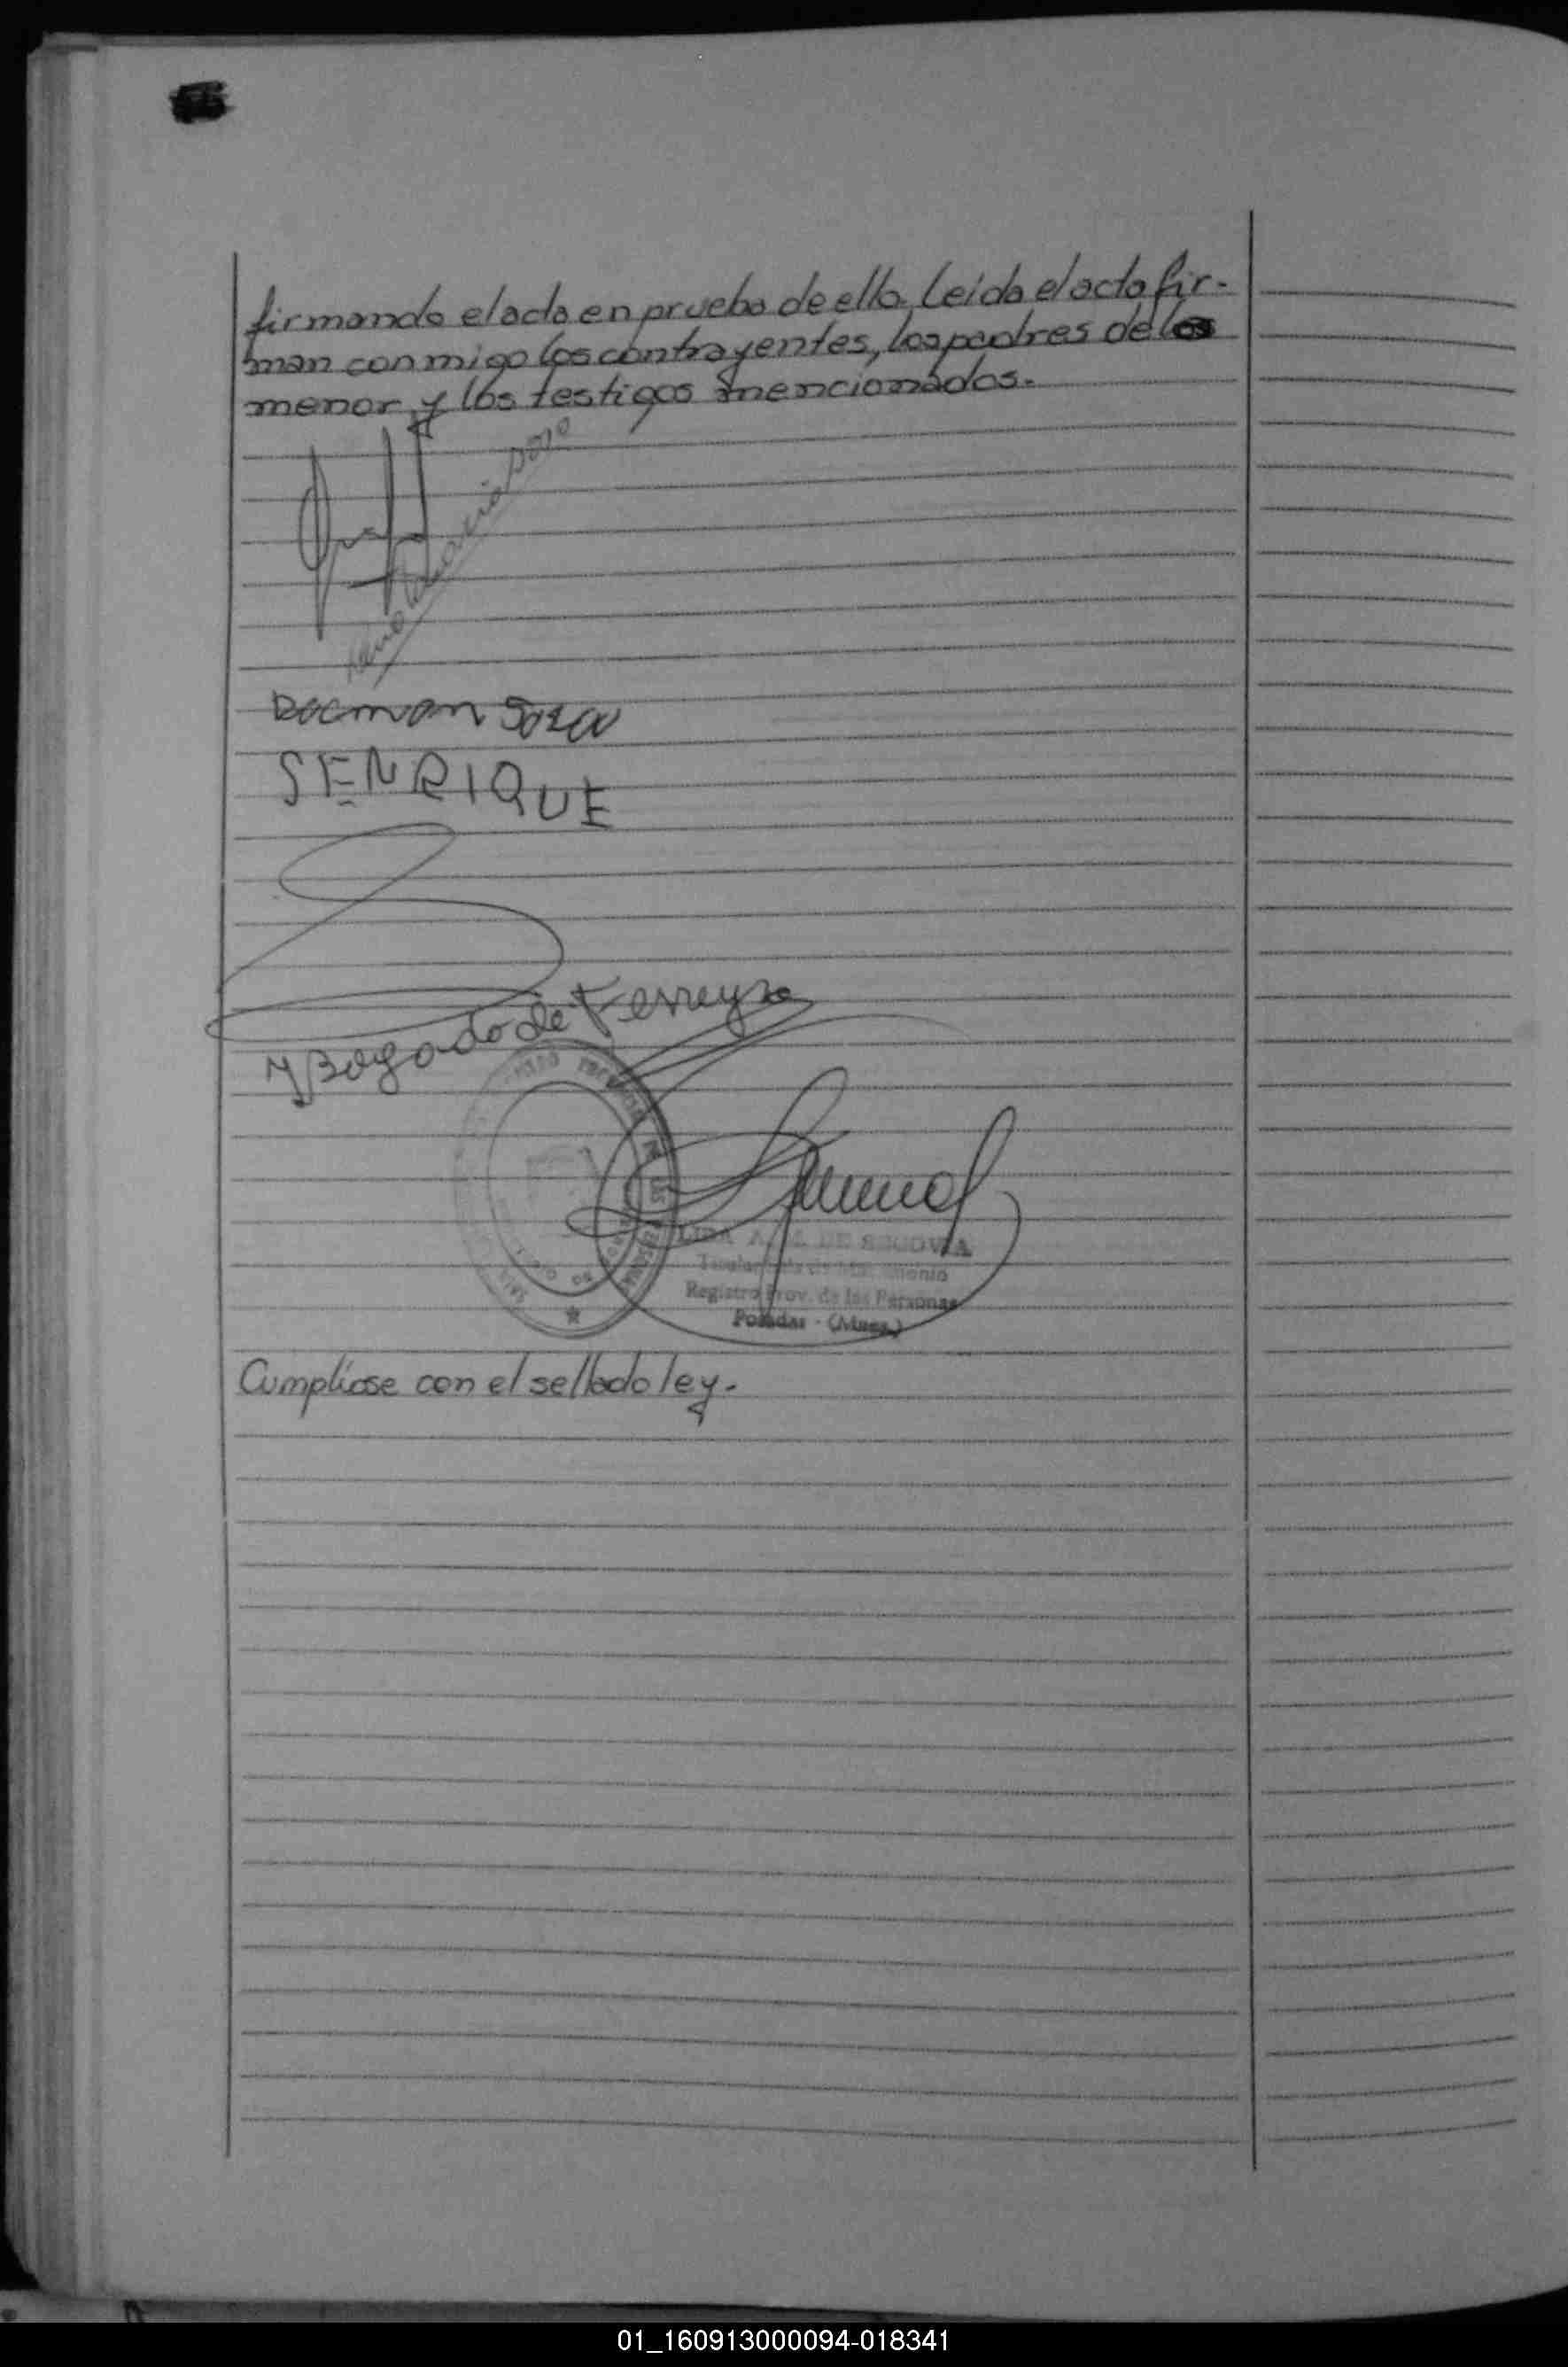 firmando el acta en prueba de ello. Leida el acta fir-
man conmigo los contrayentes, los padres de
menor y los testigos mencionados.-
Sosa
SENRIQUE
Bogado de Ferreyra
DE SEGOVIA
Registro Prov. de las Personas
Posadas - (Mnes.)
Cumpliose con el sellado ley.-
01_160913000094-018341